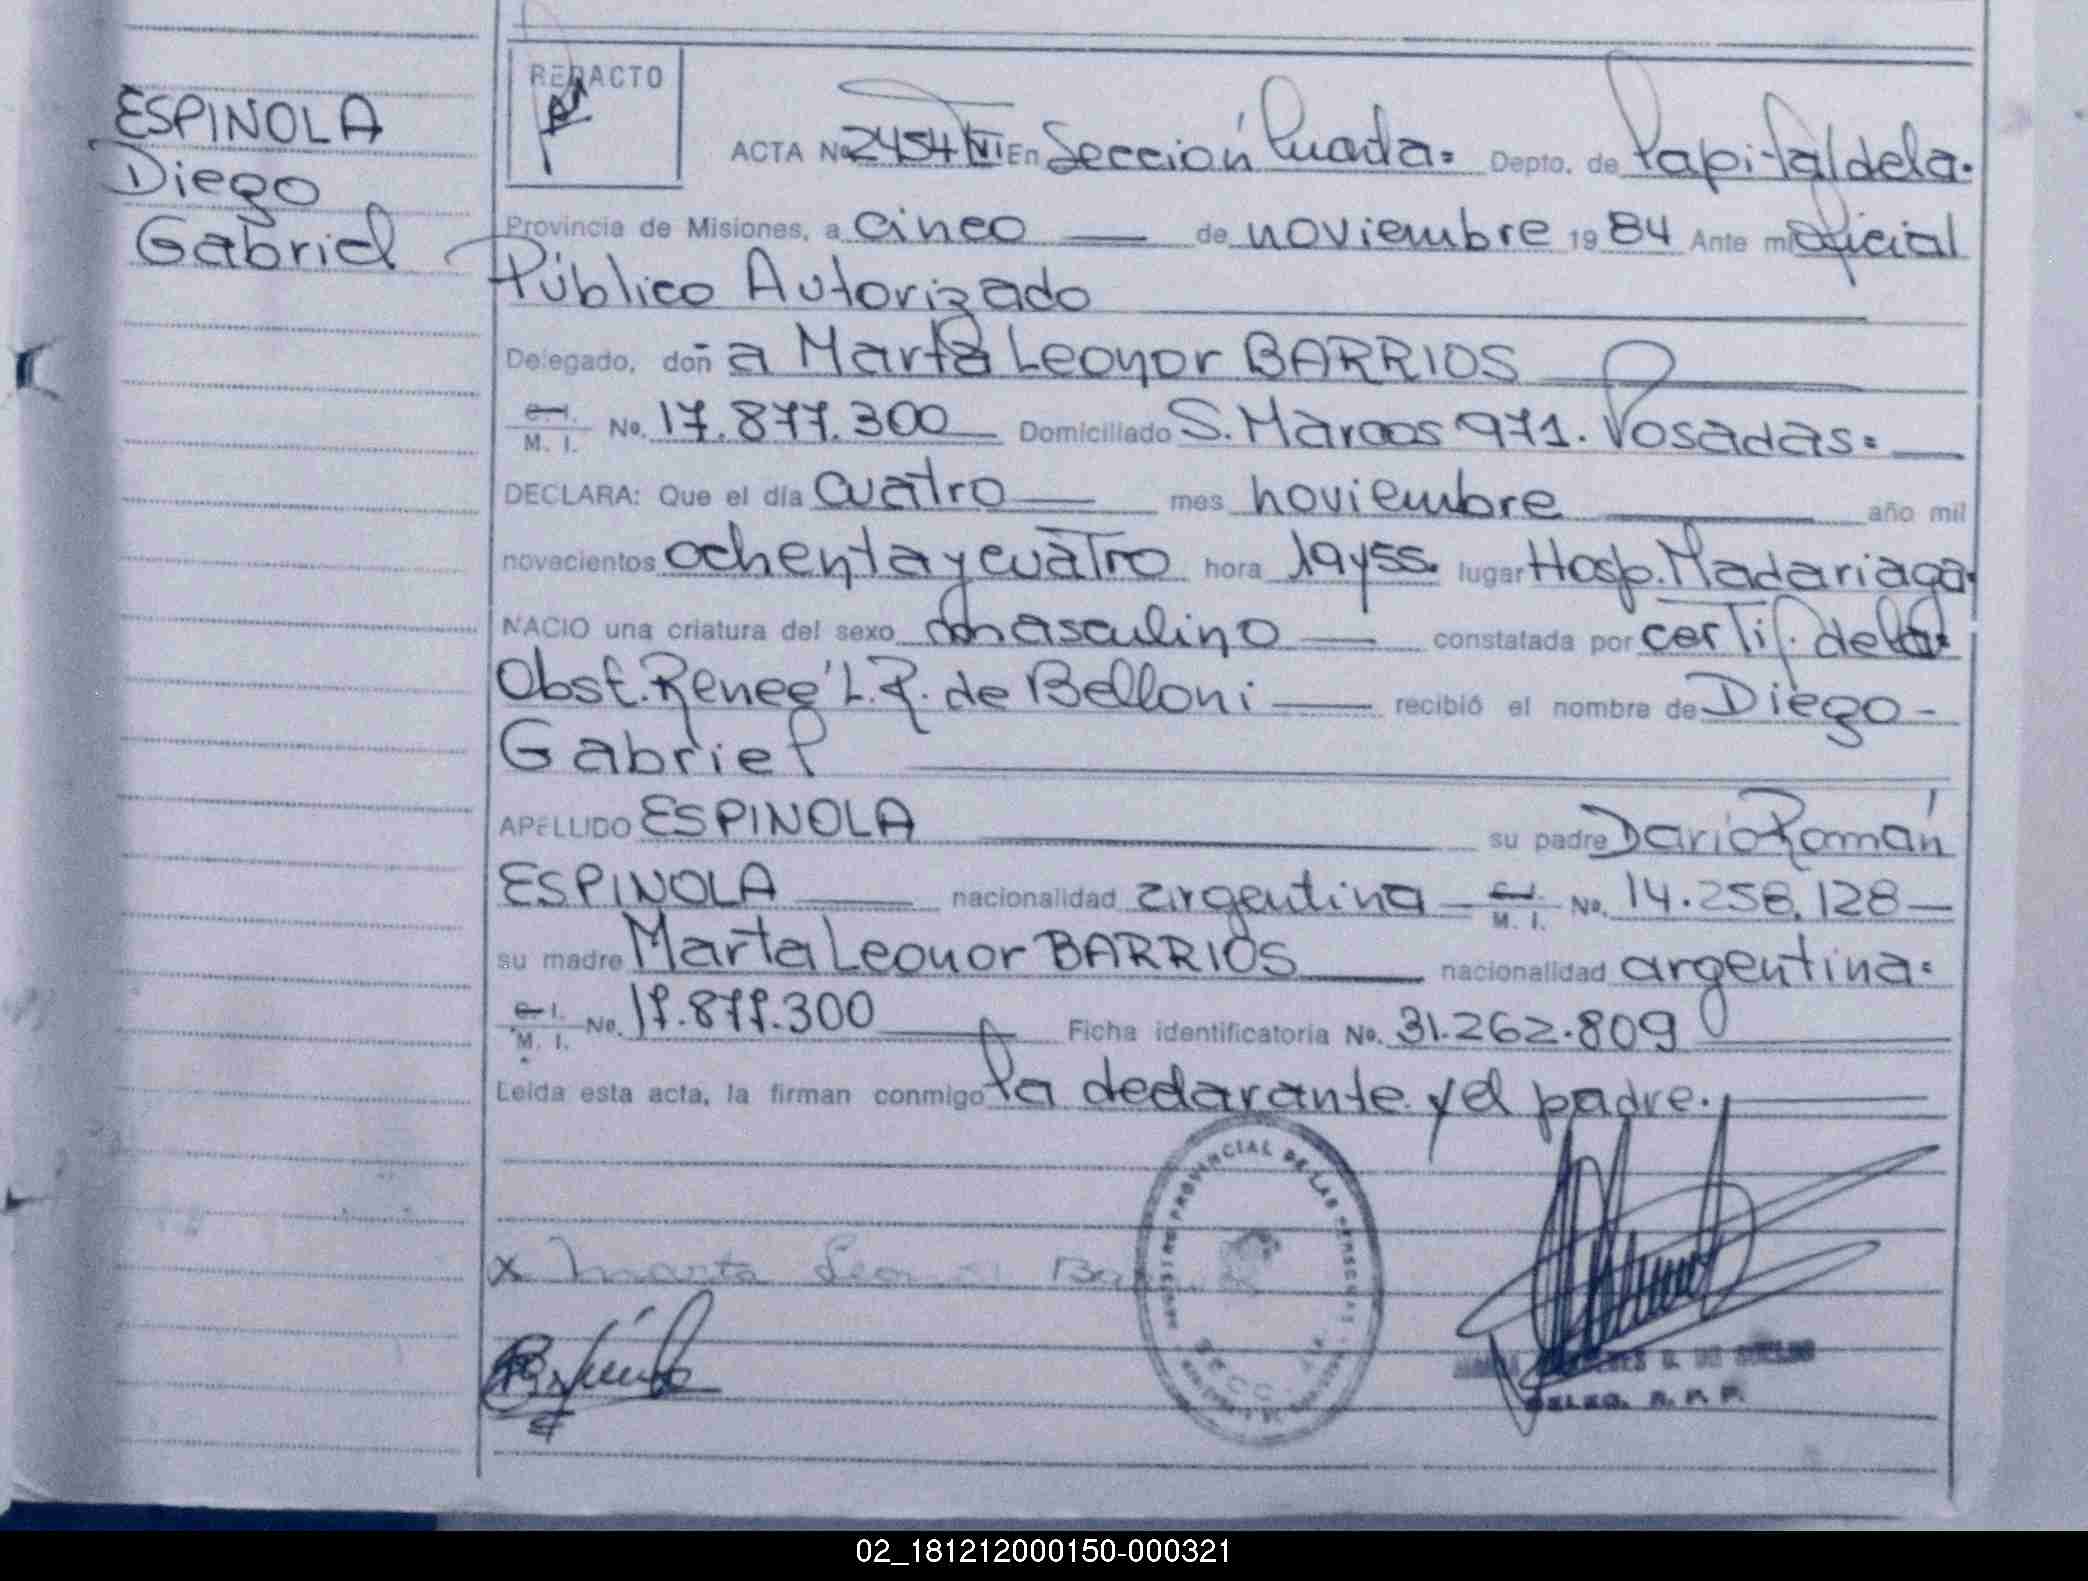 ESPINOLA
Diego
Gabriel
REDACTO
ACTA No 2454 TVI En Sección Cuarta= Depto. de Capital de la.
Provincia de Misiones, a cinco de noviembre 1984 Ante mi Oficial
Público Autorizado
Delegado, doña Marta Leonor BARRIOS
C. I.
M. I. No. 17.877.300 Domiciliado S. Marcos 971. Posadas=
DECLARA: Que el día cuatro mes noviembre año mil
novecientos ochenta y cuatro hora 19y55. lugar Hosp. Madariaga.
NACIO una criatura del sexo masculino constatada por certif. de la
Obst. Renee L. R. de Belloni recibió el nombre de Diego-
Gabriel
APELLIDO ESPINOLA su padre Darío Román
ESPINOLA nacionalidad argentina C. I.
M. I. No. 14.258.128
su madre Marta Leonor BARRIOS nacionalidad argentina=
C. I.
M. I. No. 17.877.300 Ficha identificatoria No. 31.262.809
Leída esta acta, la firman conmigo la declarante y el padre.
REGISTRO PROVINCIAL DE LAS PERSONAS
SECC. 4a.
x Marta Leonor Ba
DELEG. R. P. P.
02_181212000150-000321